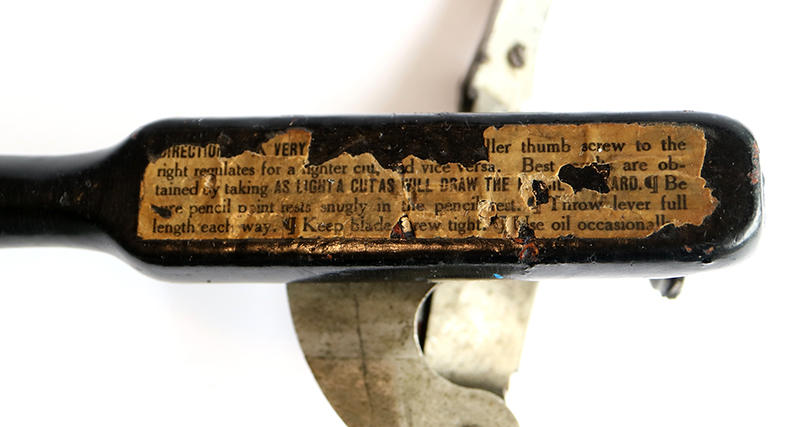 DIRECTION A VERY ller thumb screw to the
right regulates for a lighter cut, and vice versa. Best are ob-
tained by taking AS LIGHT A CUT AS WILL DRAW THE ARD. ¶ Be
sure pencil point rests snugly in the pencil rest. ¶ Throw lever full
length each way. ¶ Keep blade screw tight. ¶ Use oil occasionally